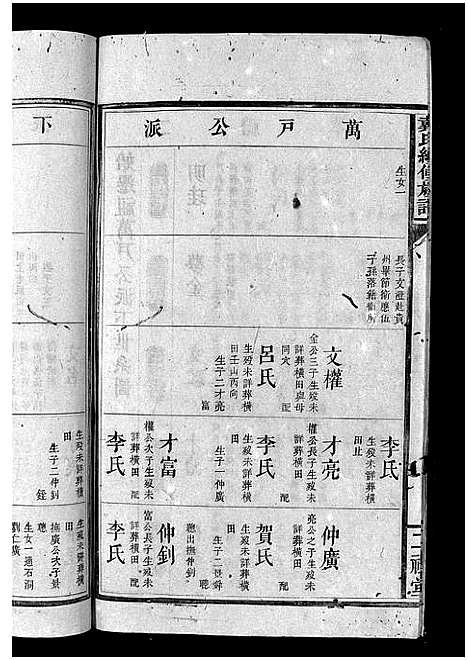 萬戶公派
生女一
長子文澄赴貴
州畢節衛應伍
子孫落籍衛所
文權
金公三子生歿未
詳葬橫田與母
同穴 配
呂氏
生歿未詳葬橫
田壬山丙向
生子二才亮
富
李氏
生歿未詳葬橫
田止
才亮
權公長子生歿未
詳葬橫田 配
賀氏
生歿未詳葬橫
田
生子一仲廣
才富
權公次子生歿未
詳葬橫田 配
李氏
生歿未詳葬橫
田
生子二仲釗
銍
仲廣
亮公之子生歿未
詳葬橫田 配
賀氏
生歿未詳葬橫田
生子二景舜
聰
聰出撫仲釗
仲釗
富公長子生歿未
詳葬橫田 配
李氏
生歿未詳葬橫
田
撫廣公次子景
聰
生女一適石洞
劉仁廣
下